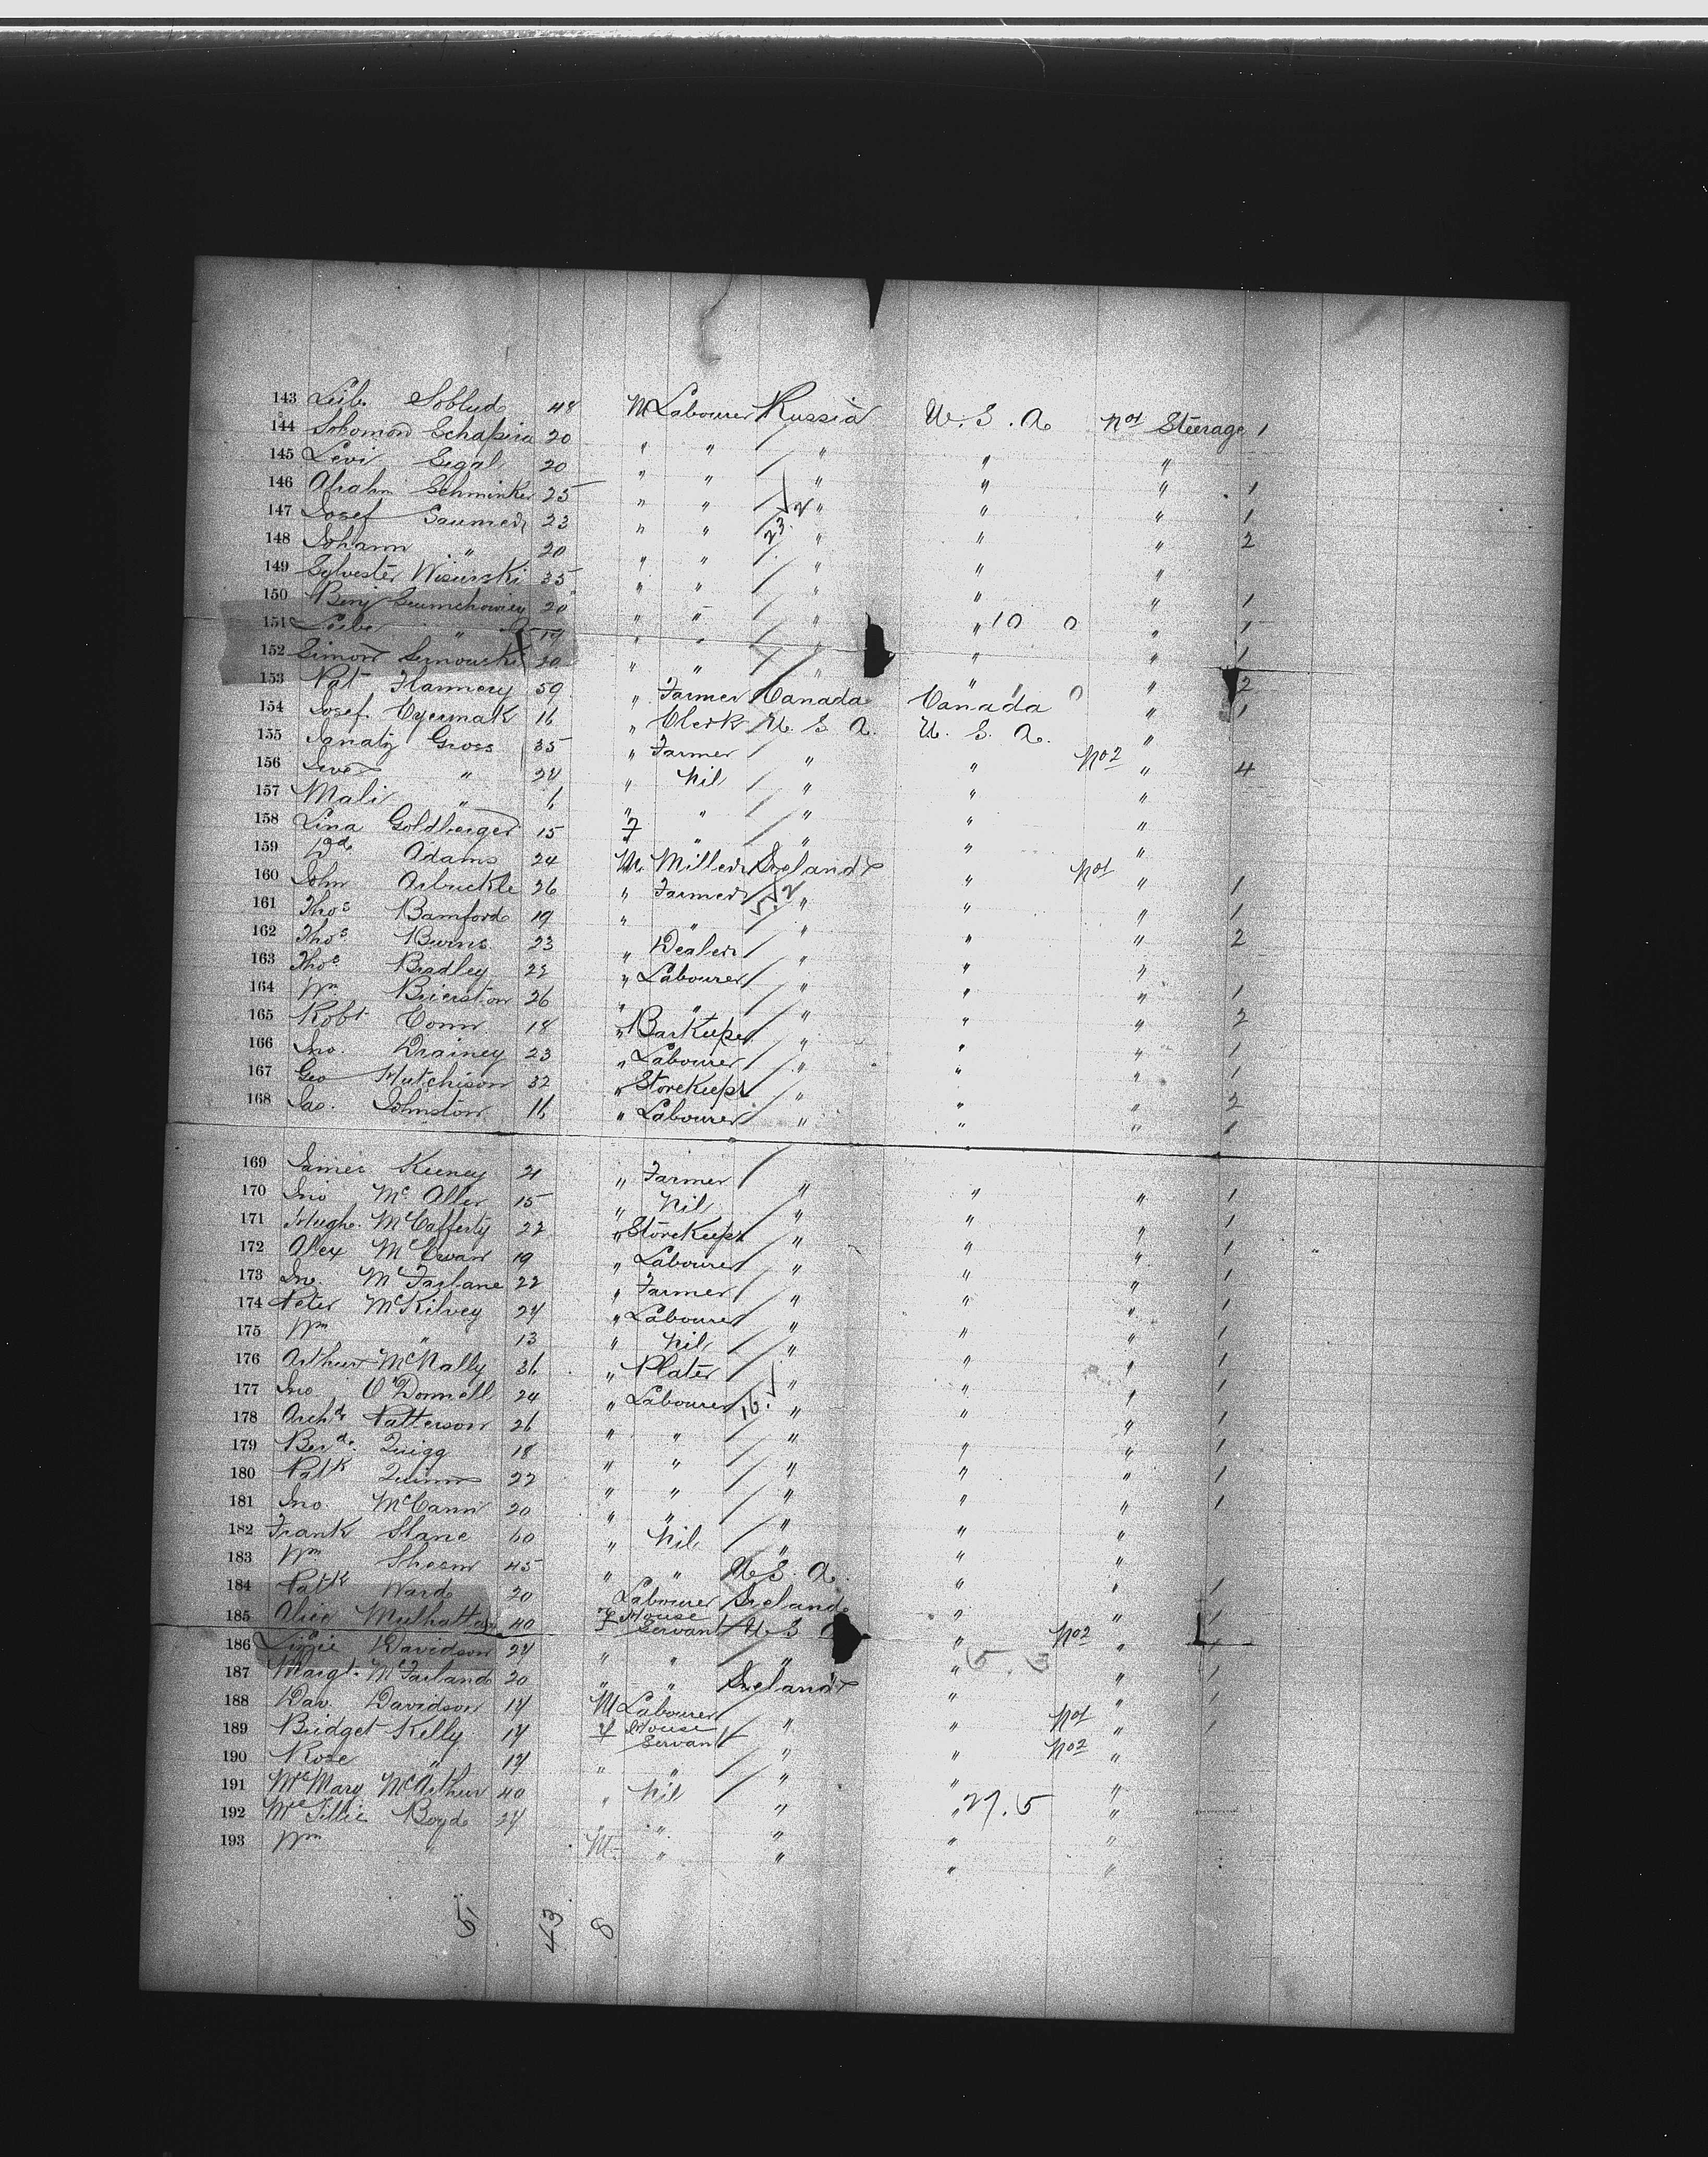 143 Leib Soblud 48 M Labourer Russia U. S. A. No1 Steerage 1
144 Solomon Schapira 20 " " " " "
145 Levi Segal 20 " " " " " 1
146 Abrahm Schminker 25 " " " " " 1
147 Josef 23 " " " " " 2
148 Johann " 20 " " " " "
149 Sylvester Wisurski 35 " " " " " 1
150 Benj 20 " " " " 10 0 " 1
151 Leiber " " " " " 1
152 Simon 20 " " " " " 0 " 2
153 Pat Flannery 59 " Farmer Canada Canada " 1
154 Josef Czermak 16 " Clerk U. S. A. U. S. A. "
155 Ignatz Gross 35 " Farmer " " No2 " 4
156 " 24 " Nil " " "
157 Mali " 1 " " " " "
158 Lina Goldberger 15 F " " " "
159 Adams 24 M Miller Ireland " No1 " 1
160 John Arbuckle 26 " Farmer " " " 1
161 Thos Bamford 19 " " " " " 2
162 Thos Burns 23 " Dealer " " "
163 Thos Bradley 22 " Labourer " " " 1
164 Wm Brierston 26 " " " " " 2
165 Robt Conn 18 " Barkeeper " " " 1
166 Jno. Drainey 23 " Labourer " " " 1
167 Geo Hutchison 32 " Storekeepr " " " 2
168 Jas. Johnston 16 " Labourer " " " 1
169 James Keeney 21 " Farmer " " " 1
170 Jno McAller 15 " Nil " " " 1
171 Hugh McCafferty 22 " Storekeepr " " " 1
172 Alex McEwan 19 " Labourer " " " 1
173 Jno. McFarlane 22 " Farmer " " " 1
174 Peter McKilvey 24 " Labourer " " " 1
175 Wm " 13 " Nil " " " 1
176 Arthur McNally 36 " Plater " " " 1
177 Jno O'Donnell 24 " Labourer " " " 1
178 Archd Patterson 26 " " " " " 1
179 Berd. Quigg 18 " " " " " 1
180 Patk Quinn 22 " " " " " 1
181 Jno. McCann 20 " " " " "
182 Frank Slane 60 " Nil " " "
183 Wm 45 " " U. S. A. " " 1
184 Patk Ward 20 Labourer Ireland " " 1
185 Alice Mulhattan 40 F House Servant U S A " No2 "
186 Lizzie Davidson 24 " " " " 5.3 " 1
187 Margt. McFarland 20 " " Ireland " " 1
188 Dav. Davidson 17 M Labourer " " No1 " 1
189 Bridget Kelly 17 F House Servant " " No2 "
190 Rose " 17 " " " " "
191 Mrs Mary McArthur 40 " Nil " " 27.5 "
192 Mrs Tillie Boyd 24 " " " " "
193 Wm M " " " "
5 43 8